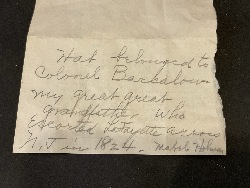 Hat belonged to
Colonel Barkalow
my great great
grandfather who
Escorted Lafayette across
N.J in 1824. Mabel